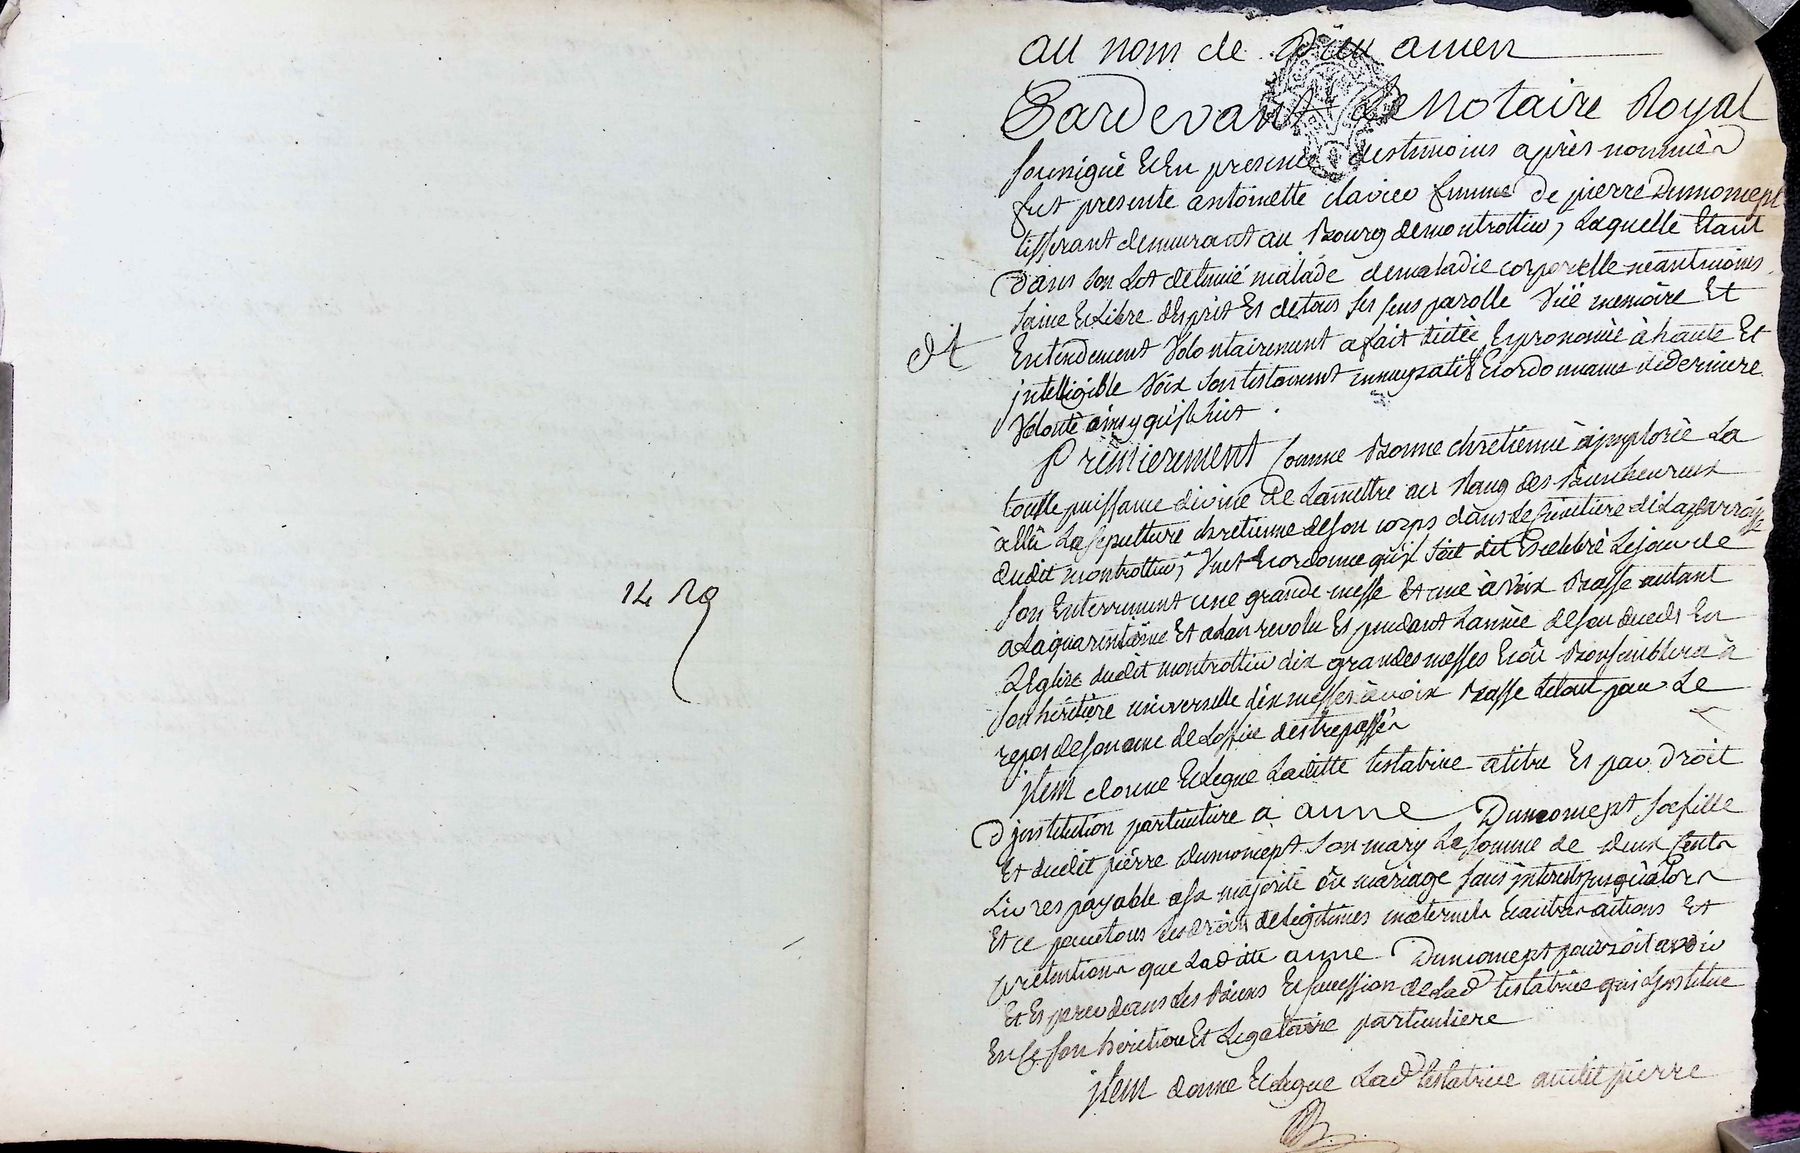 14 Rg
au nom de Dieu amen
Pardevant Le Notaire Royal
soussigné Et En presence destemoins après nommés
fut presente antoinette clavier femme de pierre Dumoncept
tisserant demeurant au Bourg demontrottier, Laquelle Etant
Dans son Lit detenüe malade demaladie corporelle neantmoins
saine Et Libre desprit Et detous ses sens parolle Vüe memoire Et
dt
Entendement Volontairement afait dictée Et prononcée à haute Et
jntelligible Voix son testament nuncupatif Et ordonnance dederniere
Volonté ainsy quil suit .
Premierement comme Bonne chretienne à jmplorée La
toutte puissance divine de Lamettre au Rang des Bienheureux
à Laditte sepulture chretienne deson corps dans Le cimitiere de Laparroisse
dudit montrottier, Veut Et ordonne quil soit dit Et celebré Lejour de
son Enterrement une grande messe Et une à Voix Basse autant
a Laquarantaine Et a Lan revolu Et pendant Lannée deson dueil En
LEglise dudit montrottier dix grandes messes Et où Bon semblera à
son heritiere universelle dix messes à voix Basse Letout pour Le
repos deson ame de Loffice destrepassés
jtem donne Et Legue Laditte testatrice atitre Et par Droit
Djnstitution particuliere à anne Dumoncept sa fille
Et dudit pierre Dumoncept son mary La somme de deux Cents
Livres payable a sa majorité ou mariage sans jnterests jusquàlors
Et ce pour tous ses droits delegitimes maternels Et autres actions Et
prétentions que Laditte anne Dumoncept pourroit avoir
Et Esperer dans Les Biens Et succession de Lad. testatrice qui Ljnstitue
En ce son heritiere Et Legataire particuliere
jtem donne Et Legue Lad. testatrice audit pierre